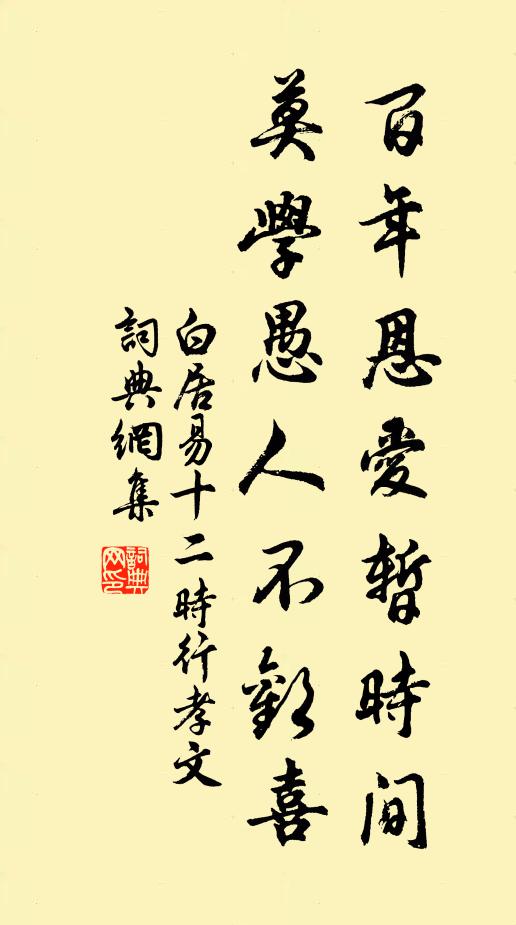 百年恩愛暫時間
莫學愚人不歡喜
白居易十二時行孝文
詞典網集
詞典网印